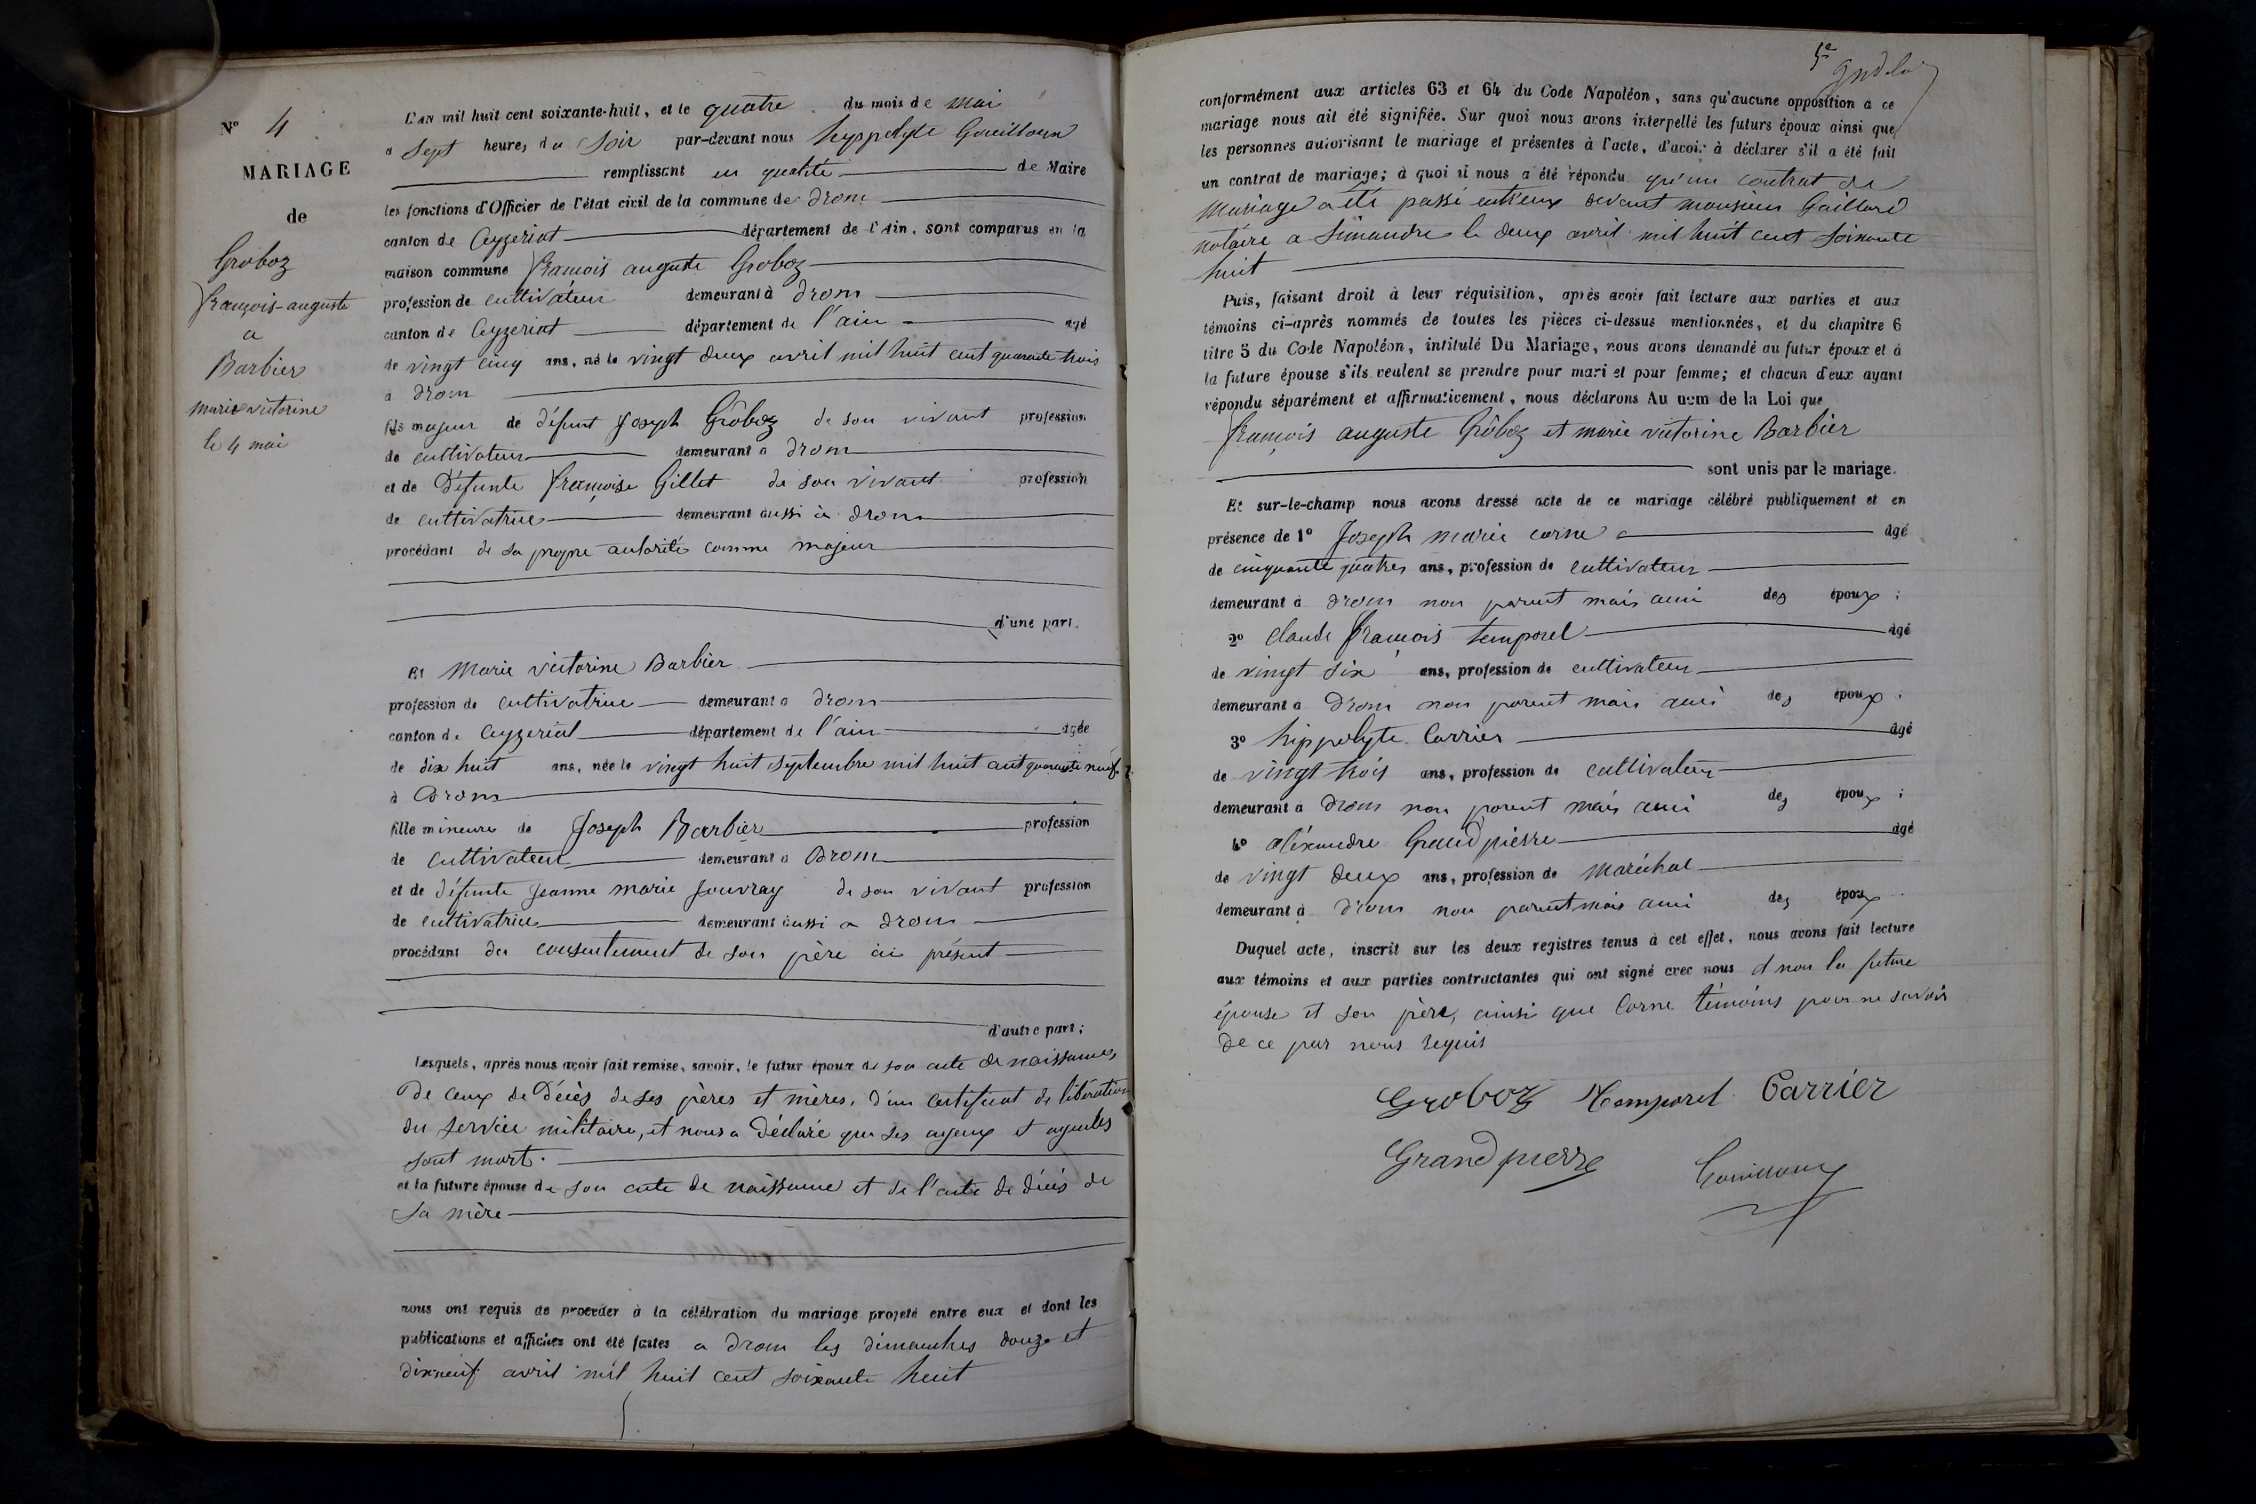 Nº 4
MARIAGE
de
Groboz
françois-auguste
a
Barbier
marie victorine
le 4 mai
L'AN mil huit cent soixante-huit, et le quatre du mois de mai
a sept heures du soir par-devant nous hyppolyte Gouilloux
remplissant en qualité de Maire
les fonctions d'Officier de l'état civil de la commune de drom
canton de Ceyzeriat département de l'Ain, sont comparus en la
maison commune françois auguste Groboz
profession de cultivateur demeurant à drom
canton de Ceyzeriat département de l'ain agé
de vingt cinq ans, né le vingt deux avril mil huit cent quarante trois
à drom
fils majeur de défunt Joseph Grôboz de son vivant profession
de cultivateur demeurant a drom
et de défunte françoise Gillet de son vivant profession
de cultivatrice demeurant aussi à drom
procédant de sa propre autorité comme majeur
d'une part.
Et Marie victorine Barbier
profession de cultivatrice demeurant a drom
canton de Ceyzeriat département de l'ain agée
de dix huit ans, née le vingt huit septembre mil huit cent quarante neuf
à Drom
fille mineure de Joseph Barbier profession
de cultivateur demeurant a Drom
et de défunte Jeanne marie Jouvray de son vivant profession
de cultivatrice demeurant aussi a drom
procédant du consentement de son père ici présent
d'autre part;
Lesquels, après nous avoir fait remise, savoir, le futur époux de son acte de naissance,
de ceux de décès de ses pères et mères, d'un certificat de libération
du service militaire, et nous a déclaré que ses ayeux et ayeules
sont mort.
et la future épouse de son acte de naissance et de l'acte de décès de
sa mère
nous ont requis de procéder à la célébration du mariage projeté entre eux et dont les
publications et affiches ont été faites a drom les dimanches douze et
dixneuf avril mil huit cent soixante huit
conformément aux articles 63 et 64 du Code Napoléon, sans qu'aucune opposition à ce
mariage nous ait été signifiée. Sur quoi nous avons interpellé les futurs époux ainsi que
les personnes autorisant le mariage et présentes à l'acte, d'avoir à déclarer s'il a été fait
un contrat de mariage; à quoi il nous a été répondu qu'un contrat de
mariage a été passé entr'eux devant monsieur Gaillard
notaire a Simandre le deux avril mil huit cent soixante
huit
Puis, faisant droit à leur réquisition, après avoir fait lecture aux parties et aux
témoins ci-après nommés de toutes les pièces ci-dessus mentionnées, et du chapitre 6
titre 5 du Code Napoléon, intitulé Du Mariage, nous avons demandé au futur époux et à
la future épouse s'ils veulent se prendre pour mari et pour femme; et chacun d'eux ayant
répondu séparément et affirmativement, nous déclarons Au nom de la Loi que
françois auguste Grôboz et marie victorine Barbier
sont unis par le mariage.
Et sur-le-champ nous avons dressé acte de ce mariage célébré publiquement et en
présence de 1º Joseph marie corne agé
de cinquante quatre ans, profession de cultivateur
demeurant à drom non parent mais ami des époux;
2º claude françois temporel agé
de vingt six ans, profession de cultivateur
demeurant à drom non parent mais ami des époux.
3º hippolyte Carrier agé
de vingt trois ans, profession de cultivateur
demeurant à drom non parent mais ami des époux;
4º aléxandre Grandpierre agé
de vingt deux ans, profession de maréchal
demeurant à drom non parent mais ami des époux
Duquel acte, inscrit sur les deux registres tenus à cet effet, nous avons fait lecture
aux témoins et aux parties contractantes qui ont signé avec nous et non la future
épouse et son père, ainsi que Corne témoins pour ne savoir
de ce par nous requis
Groboz Temporel Carrier
Grandpierre Gouilloux